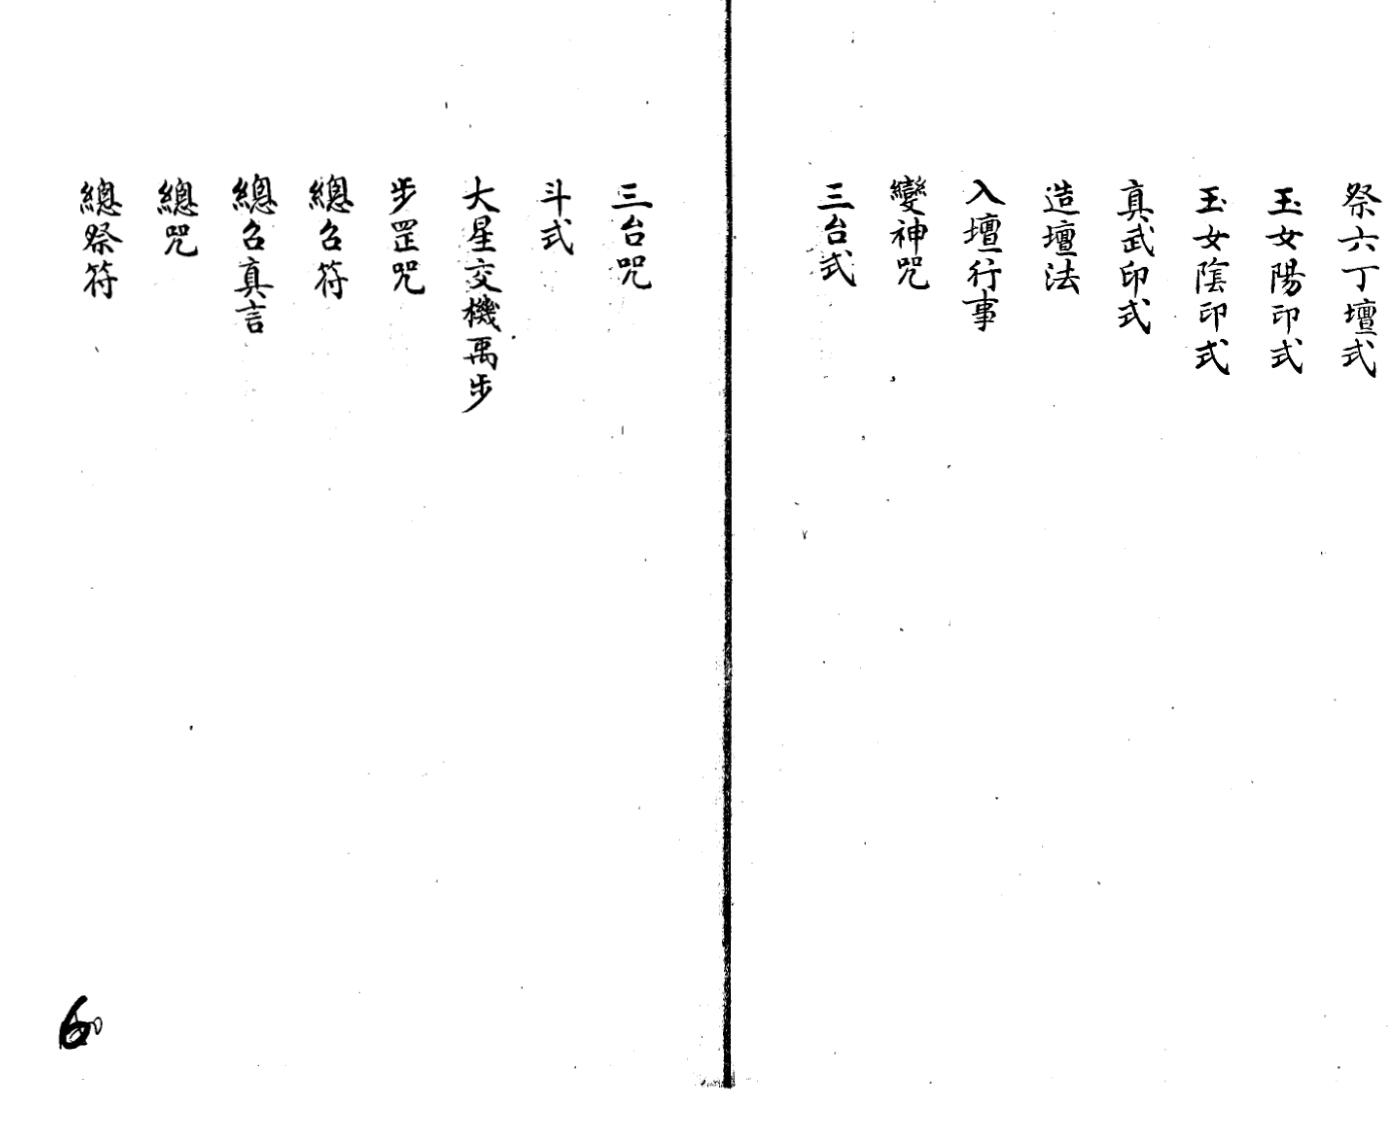 祭六丁壇式
玉女陽印式
玉女陰印式
真武印式
造壇法
入壇行事
變神咒
三台式
三台咒
斗式
大星交機禹步
步罡咒
總召符
總召真言
總咒
總祭符
6